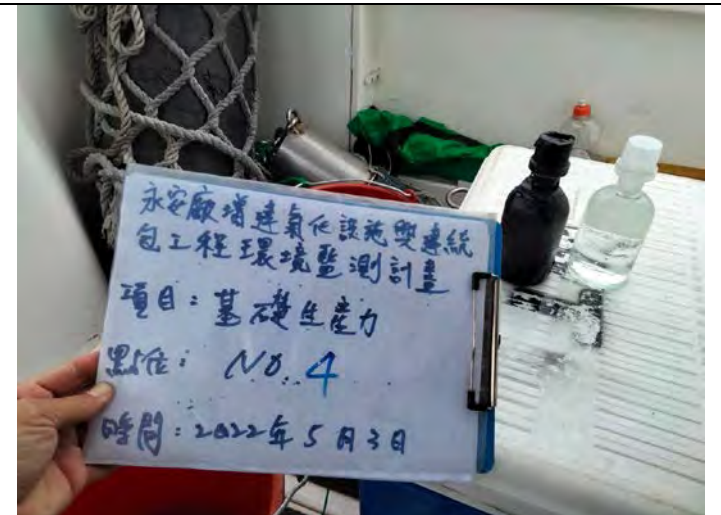 永安廠增建氣化設施興建統
包工程環境監測計畫
項目：基礎生產力
點位：NO.4
時間：2022年5月3日